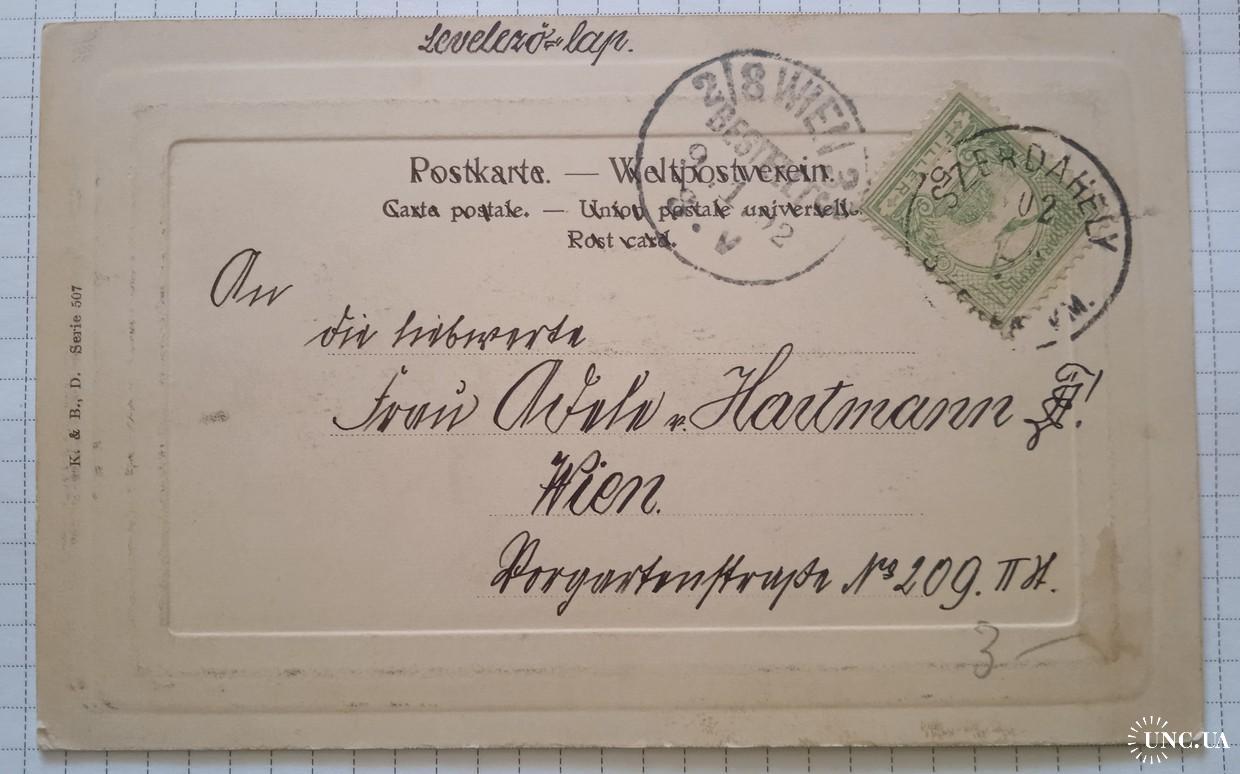 Levelező-lap.
Postkarte. — Weltpostverein.
Carte postale. — Union postale universelle.
Post card.
An
die liebwerte
Frau Adele v. Hartmann
Wien.
Vorgartenstraße No 209. II St.
3 —
K. & B., D. Serie 507
WIEN
BESTELLT
9 1 02
FILLÉR
SZERDAHELY
02
UNC.UA